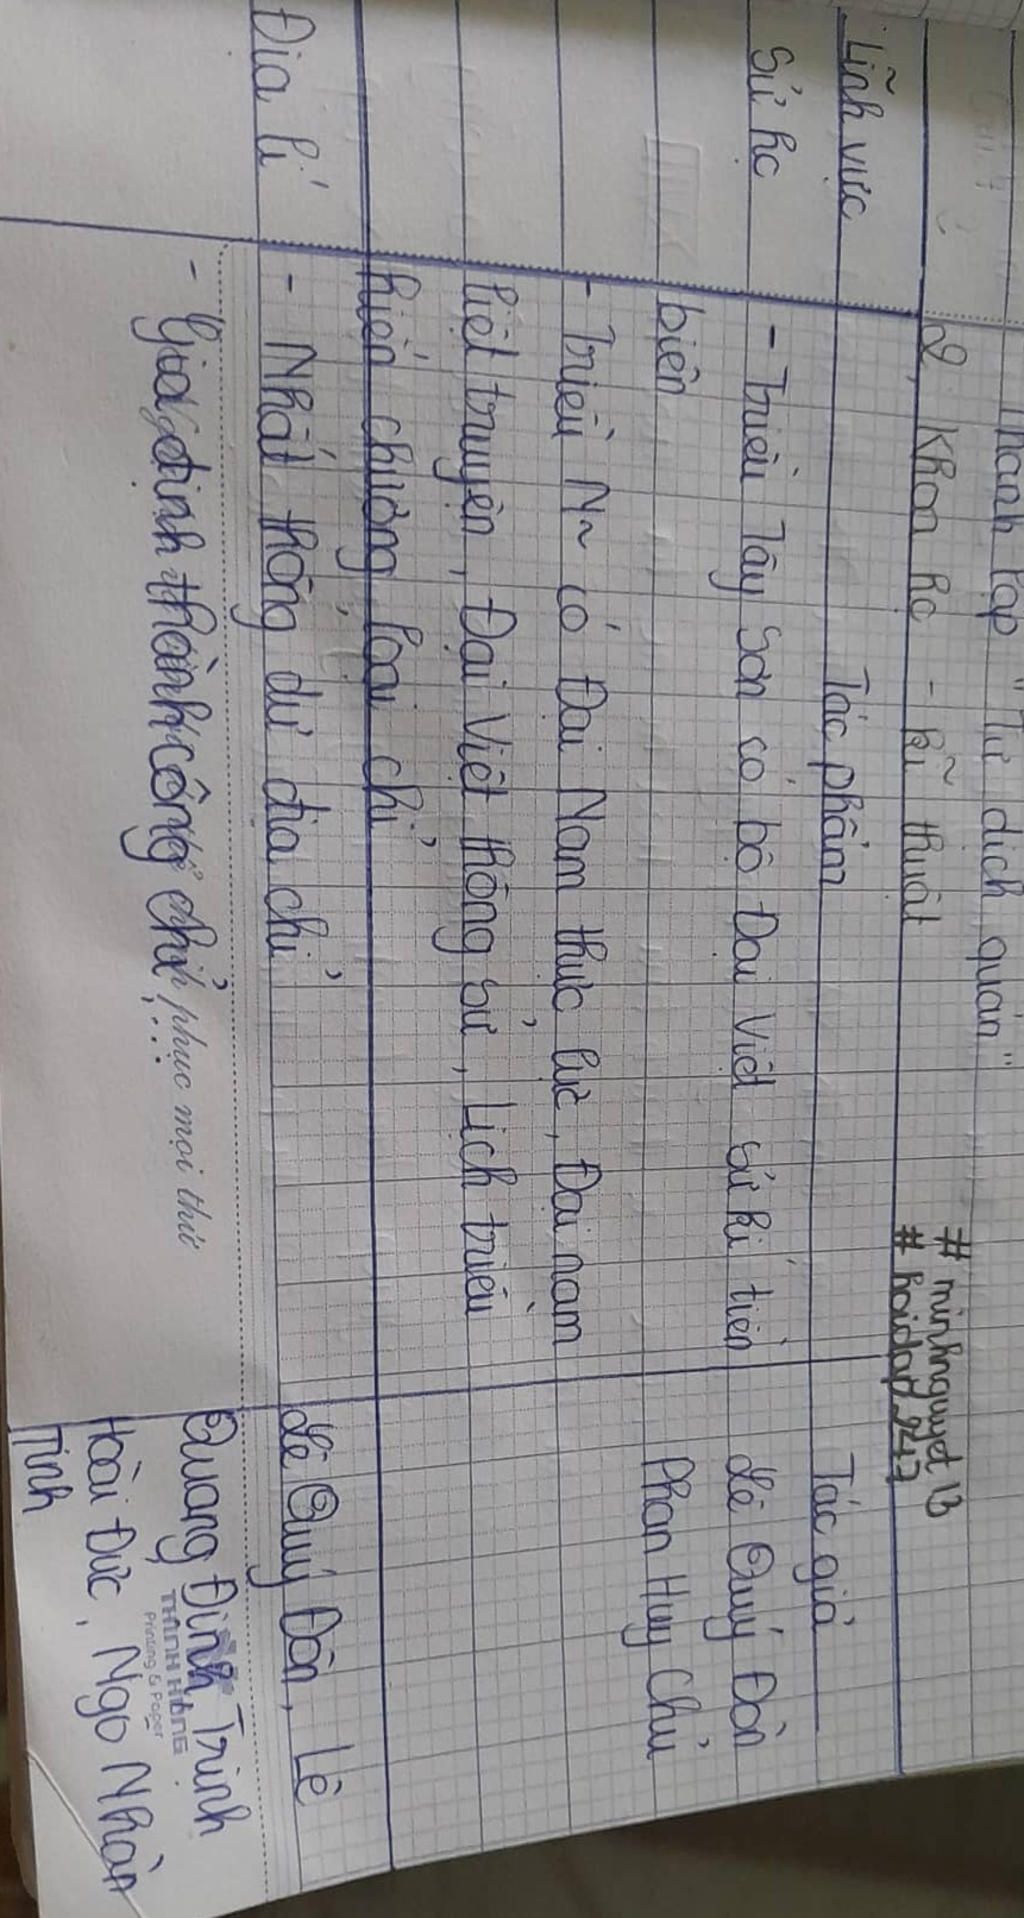 thành lập "Tứ dịch quán"
#minhnguyet13
2, Khoa họ - kĩ thuật
#hoidap247
Lĩnh vực Tác phẩm Tác giả
Sử họ - Triều Tây Sơn có bộ Đại Việt sử kí tiền Lê Quý Đôn
biên Phan Huy Chú
- Triều N~ có Đại Nam thực lục, Đại nam
liệt truyện, Đại Việt thông sử, Lịch triều
hiến chương loại chí
Địa lí - Nhất thống dư địa chí Lê Quý Đôn, Lê
- Gia định thành công chí,... Quang Định, Trịnh
phục mọi thứ
THANH HẰNG
Printing & Paper
Hoài Đức, Ngo Nhân
Tĩnh